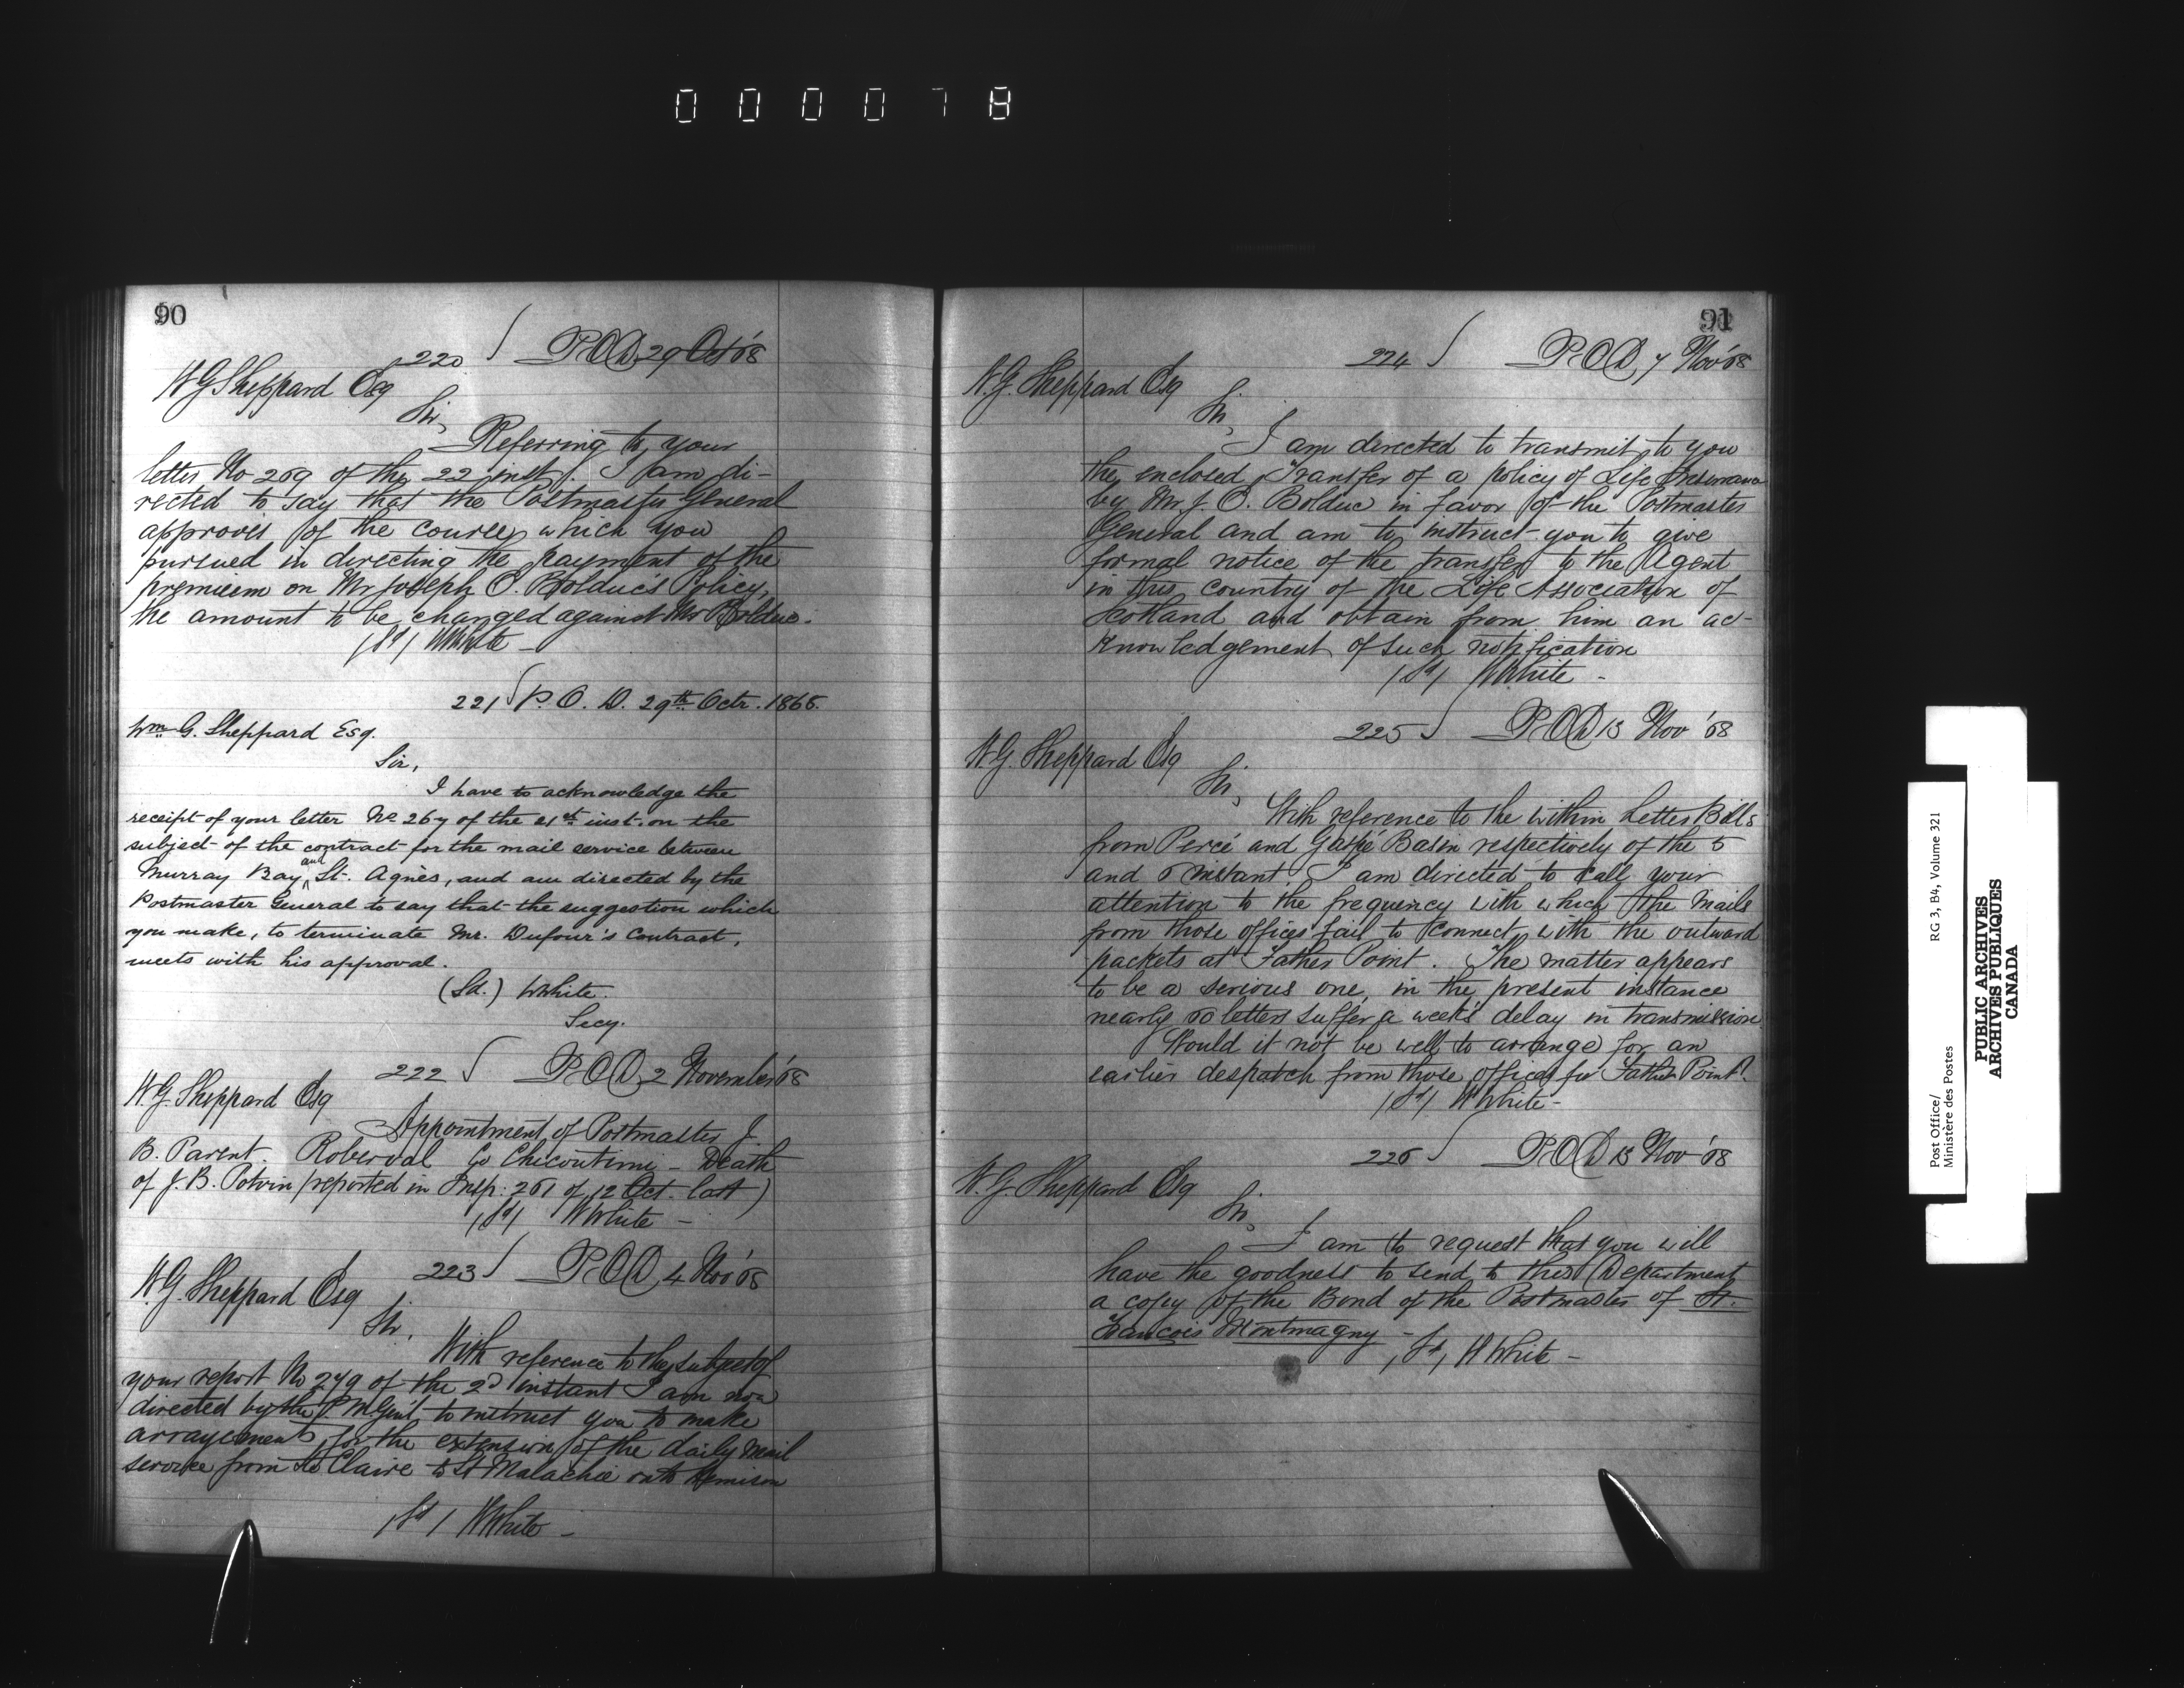 000078
90
220 P.O.D. 29 Oct '68
W G Sheppard Esq
Sir,
Referring to your
letter No 269 of the 22 inst. I am di-
rected to say that the Postmaster General
approves of the course which you
pursued in directing the payment of the
premium on Mr Joseph O. Bolduc's Policy,
the amount to be charged against Mr Bolduc.
(Sd) WWhite -
221 P.O.D. 29th Octr. 1868.
Wm G. Sheppard Esq.
Sir,
I have to acknowledge the
receipt of your letter No 267 of the 21st inst. on the
subject of the contract for the mail service between
Murray Bay and St. Agnes, and am directed by the
Postmaster General to say that the suggestion which
you make, to terminate Mr. Dufour's Contract,
meets with his approval.
(Sd.) WWhite.
Secy.
222 P.O.D. 2 November '68
W.G. Sheppard Esq
Appointment of Postmaster J.
B. Parent. Roberval Co Chicoutimi - Death
of J. B. Potvin (reported in Insp: 261 of 12 Oct. last)
(Sd) WWhite -
223 P.O.D. 4 Nov '68
W.G. Sheppard Esq
Sir,
With reference to the subject of
your report No 279 of the 2d instant I am now
directed by the P.M.Gen'l to instruct you to make
arrangements for the extension of the daily mail
service from Ste Claire to St Malachie
(Sd) WWhite -
91
224 P.O.D. 7 Nov '68
W.G. Sheppard Esq
Sir,
I am directed to transmit to you
the enclosed Transfer of a policy of Life Insurance
by Mr J. O. Bolduc in favor of the Postmaster
General and am to instruct you to give
formal notice of the transfer to the Agent
in this country of the Life Association of
Scotland and obtain from him an ac-
knowledgement of such notification
(Sd) WWhite -
225 P.O.D. 13 Nov '68
W.G. Sheppard Esq
Sir,
With reference to the within Letter Bills
from Percé and Gaspé Basin respectively of the 5
and 6 instant I am directed to call your
attention to the frequency with which the Mails
from those offices fail to connect with the outward
packets at Father Point. The matter appears
to be a serious one, in the present instance
nearly 60 letters suffer a week's delay in transmission
Would it not be well to arrange for an
earlier despatch from those offices for Father Point?
(Sd) WWhite -
226 P.O.D. 13 Nov '68
W.G. Sheppard Esq
Sir,
I am to request that you will
have the goodness to send to this Department
a copy of the Bond of the Postmaster of St.
Francois Montmagny -
(Sd) WWhite -
Post Office/
Ministère des Postes
RG 3, B4, Volume 321
PUBLIC ARCHIVES
ARCHIVES PUBLIQUES
CANADA